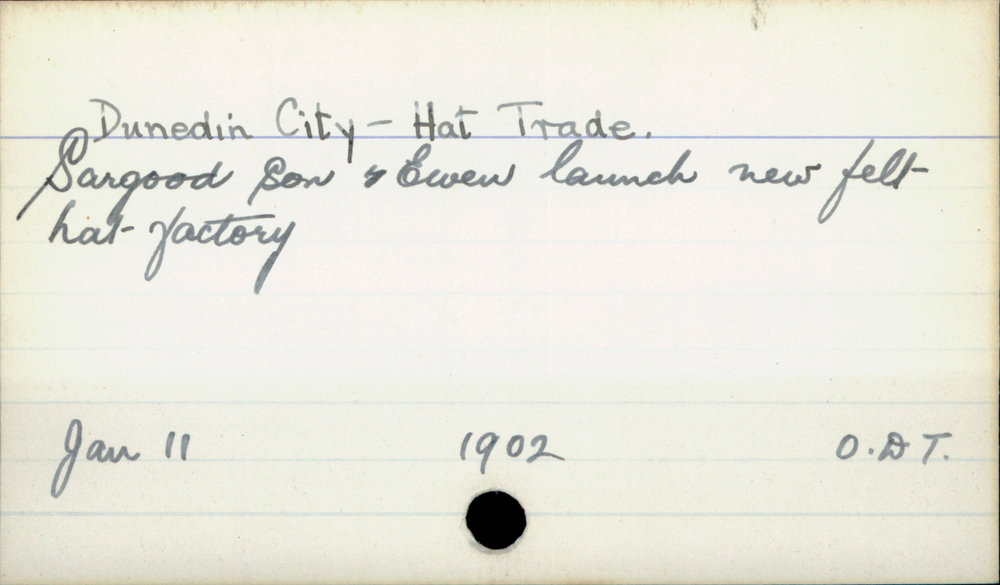 Dunedin City - Hat Trade.
Sargood Son & Ewen launch new felt
hat factory
Jan 11 1902 O.D T.